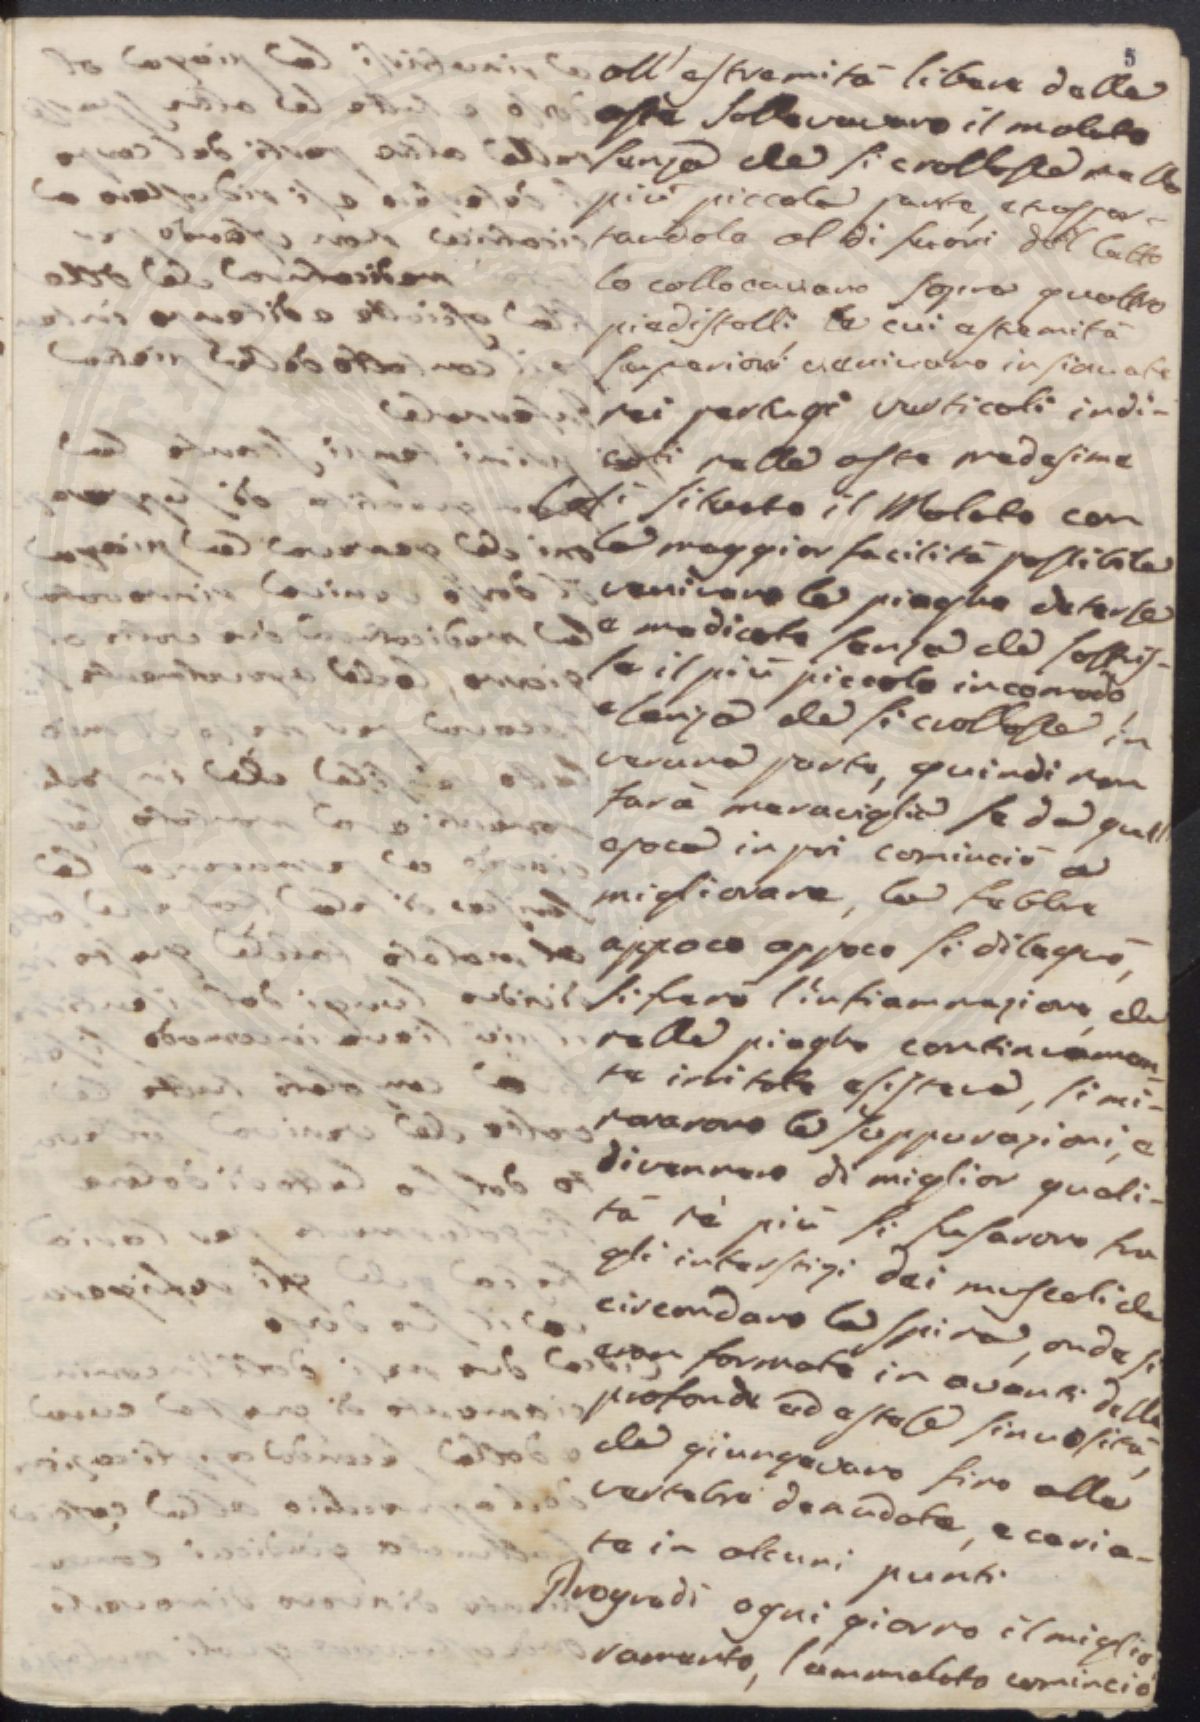 5
all'estremità libere delle
aste sollevavano il malato
senza che si crollasse nella
più piccola parte, e traspor-
tandola al di fuori del letto
lo collocavano sopra quattro
piedistalli, le cui estremità
superiori venivano insinuate
nei pertugi verticali indi-
cati nelle aste medesime
Così situato il Malato con
la maggior facilità possibile
venivano le piaghe deterse
e medicate senza che soffris-
se il più piccolo incomodo,
e senza che si crollasse in
veruna parte, quindi non
farà meraviglia se da quell'
epoca in poi cominciò a
migliorare, la febbre
appoco appoco si dileguò,
si frenò l'infiammazione, che
nelle piaghe continuamen-
te irritate esisteva, si mi-
norarono le suppurazioni, e
divennero di miglior quali-
tà nè più si fusarono tra
gli interstizi dei muscoli che
circondano la spina, onde si
eran formate in avanti delle
profonde ed estese sinuosità,
che giungevano fino alle
vertebre denudate, e caria-
te in alcuni punti
Progredì ogni giorno il miglio
ramento, l'ammalato cominciò